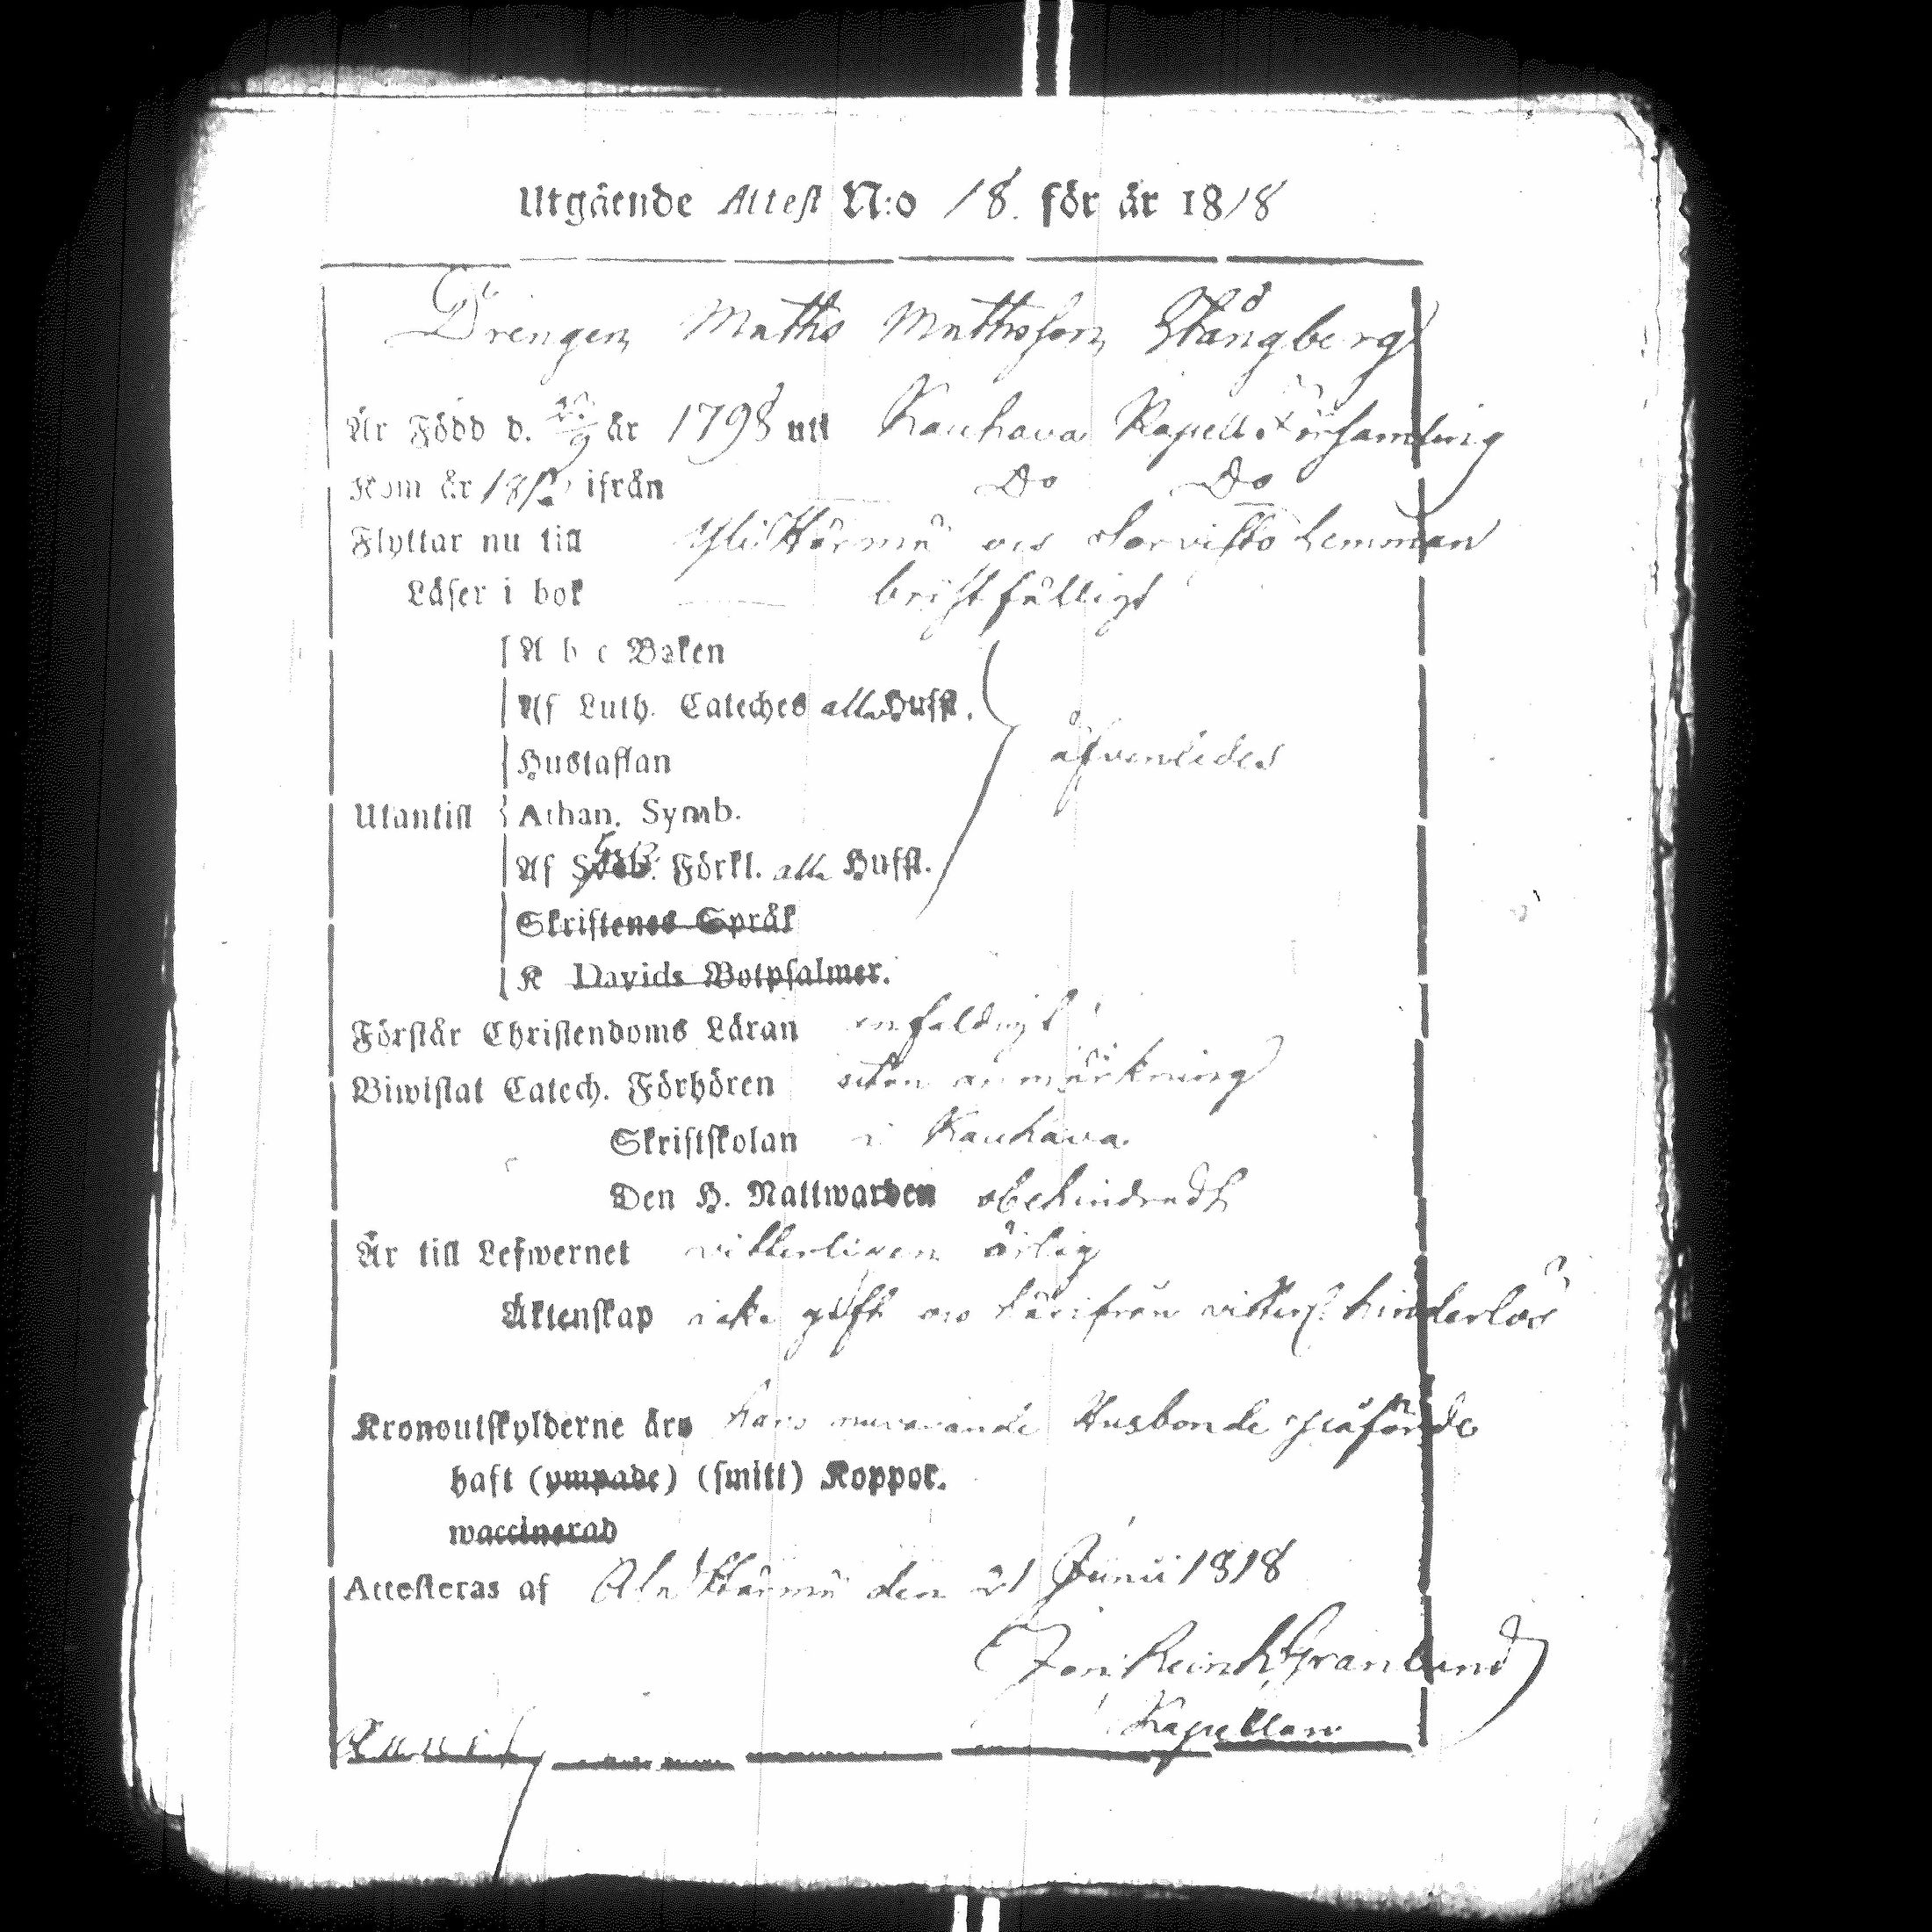 Utgående Attest N:o 18. för år 1818
Drengen Matts Mattsson Stångberg
Är Född d. år 1798 uti Kauhava Kapell Församling
Kom år ifrån Do Do
Flyttar nu till Yli Härmä Hemman
Läser i bok bristfälligt
A b c Boken
Af Luth. Cateches alla Hufst.
Hustaflan
äfvenledes
Utantill Athan. Symb.
Af Förkl. alla Hufst.
Skriftenes Språk
K Davids Botpsalmer.
Förstår Christendoms Läran enfaldigt
Biwistat Catech. Förhören utan anmärkning
Skriftskolan i Kauhava
Den H. Nattwarden obehindradt
Är till Lefwernet vitterligen ärlig
Äktenskap icke gift och härifrån vitterl. hinderlös
Kronoutskylderne äro hans nuvarande Husbonde
haft (ympade) (smitt) Koppor.
waccinerad
Attesteras af Ala Härmä den 21 Junii 1818
Granlund
Kapellan